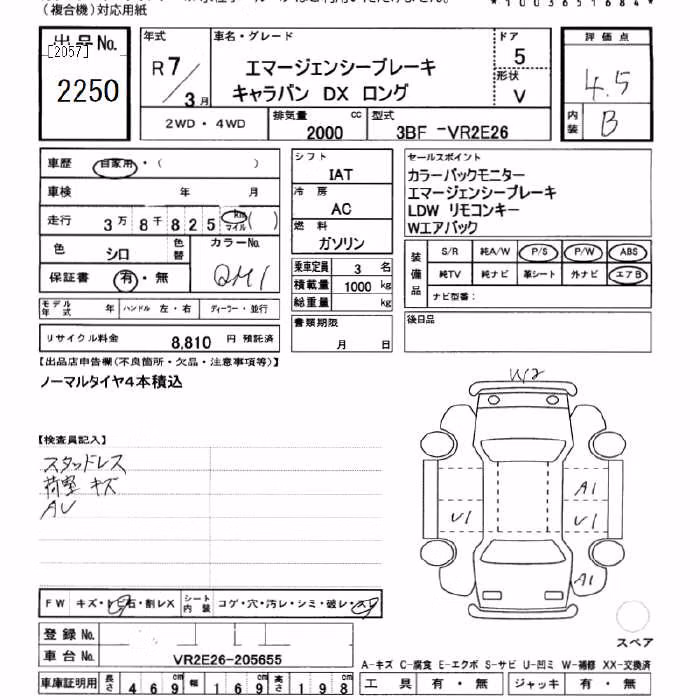 (複合機)対応用紙
*1003651684*
出品No.
[2057]
2250
年式
R7/3月
車名・グレード
エマージェンシーブレーキ
キャラバン DX ロング
ドア
5
形状
V
評価点
4.5
内装
B
2WD・4WD
排気量
2000
cc
型式
3BF -VR2E26
車歴
自家用・( )
車検
年 月
走行
3万8千825
km
マイル
( )
色
シロ
色替
カラーNo.
QM1
保証書
有・無
モデル年式
年
ハンドル 左・右
ディーラー・並行
リサイクル料金
8,810 円 預託済
シフト
IAT
冷房
AC
燃料
ガソリン
乗車定員
3 名
積載量
1000 kg
総重量
kg
書類期限
月 日
セールスポイント
カラーバックモニター
エマージェンシーブレーキ
LDW リモコンキー
Wエアバック
装備品
S/R
純A/W
P/S
P/W
ABS
純TV
純ナビ
革シート
外ナビ
エアB
ナビ型番:
後日品
【出品店申告欄(不良箇所・欠品・注意事項等)】
ノーマルタイヤ4本積込
【検査員記入】
スタッドレス
荷室 キズ
AU
W2
A1
U1
U1
A1
スペア
FW
キズ・トビ石・割レX
シート内装
コゲ・穴・汚レ・シミ・破レ・スレ
登録No.
車台No.
VR2E26-205655
車庫証明用
長さ
469
cm
幅
169
cm
高さ
198
cm
A-キズ C-腐食 E-エクボ S-サビ U-凹ミ W-補修 XX-交換済
工具
有・無
ジャッキ
有・無